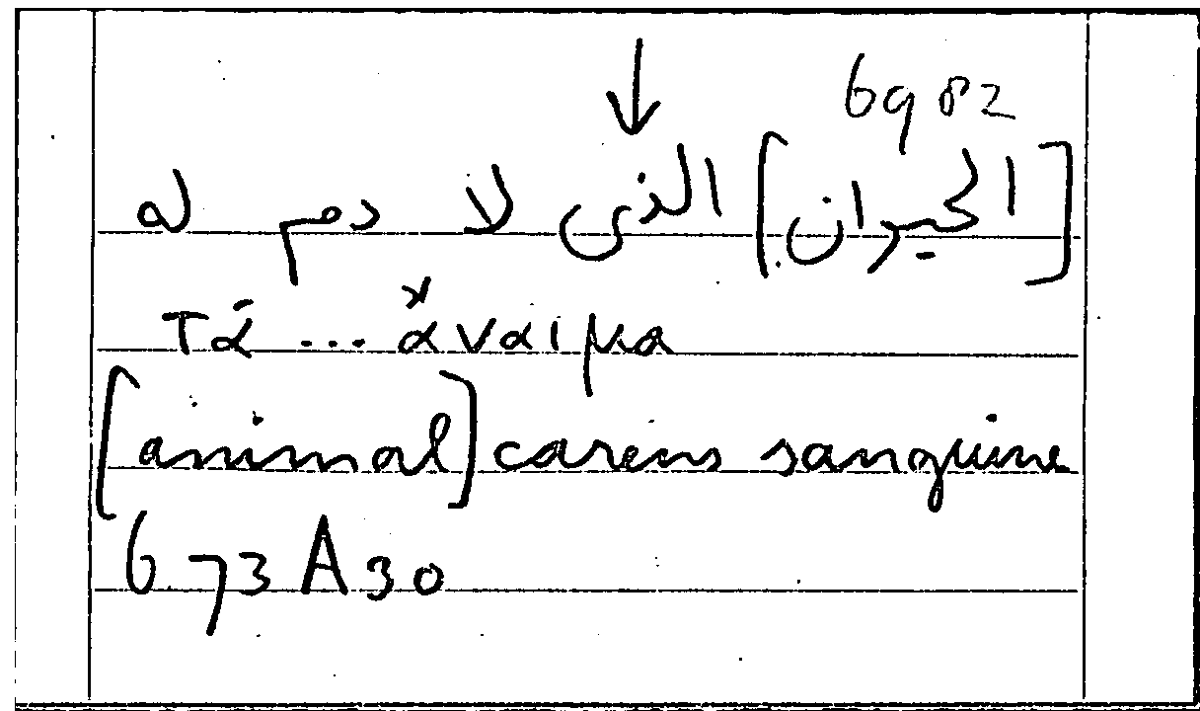 6982
[الحيوان] الذى لا دم له
τὰ ... ἄναιμα
[animal] carens sanguine
673A30